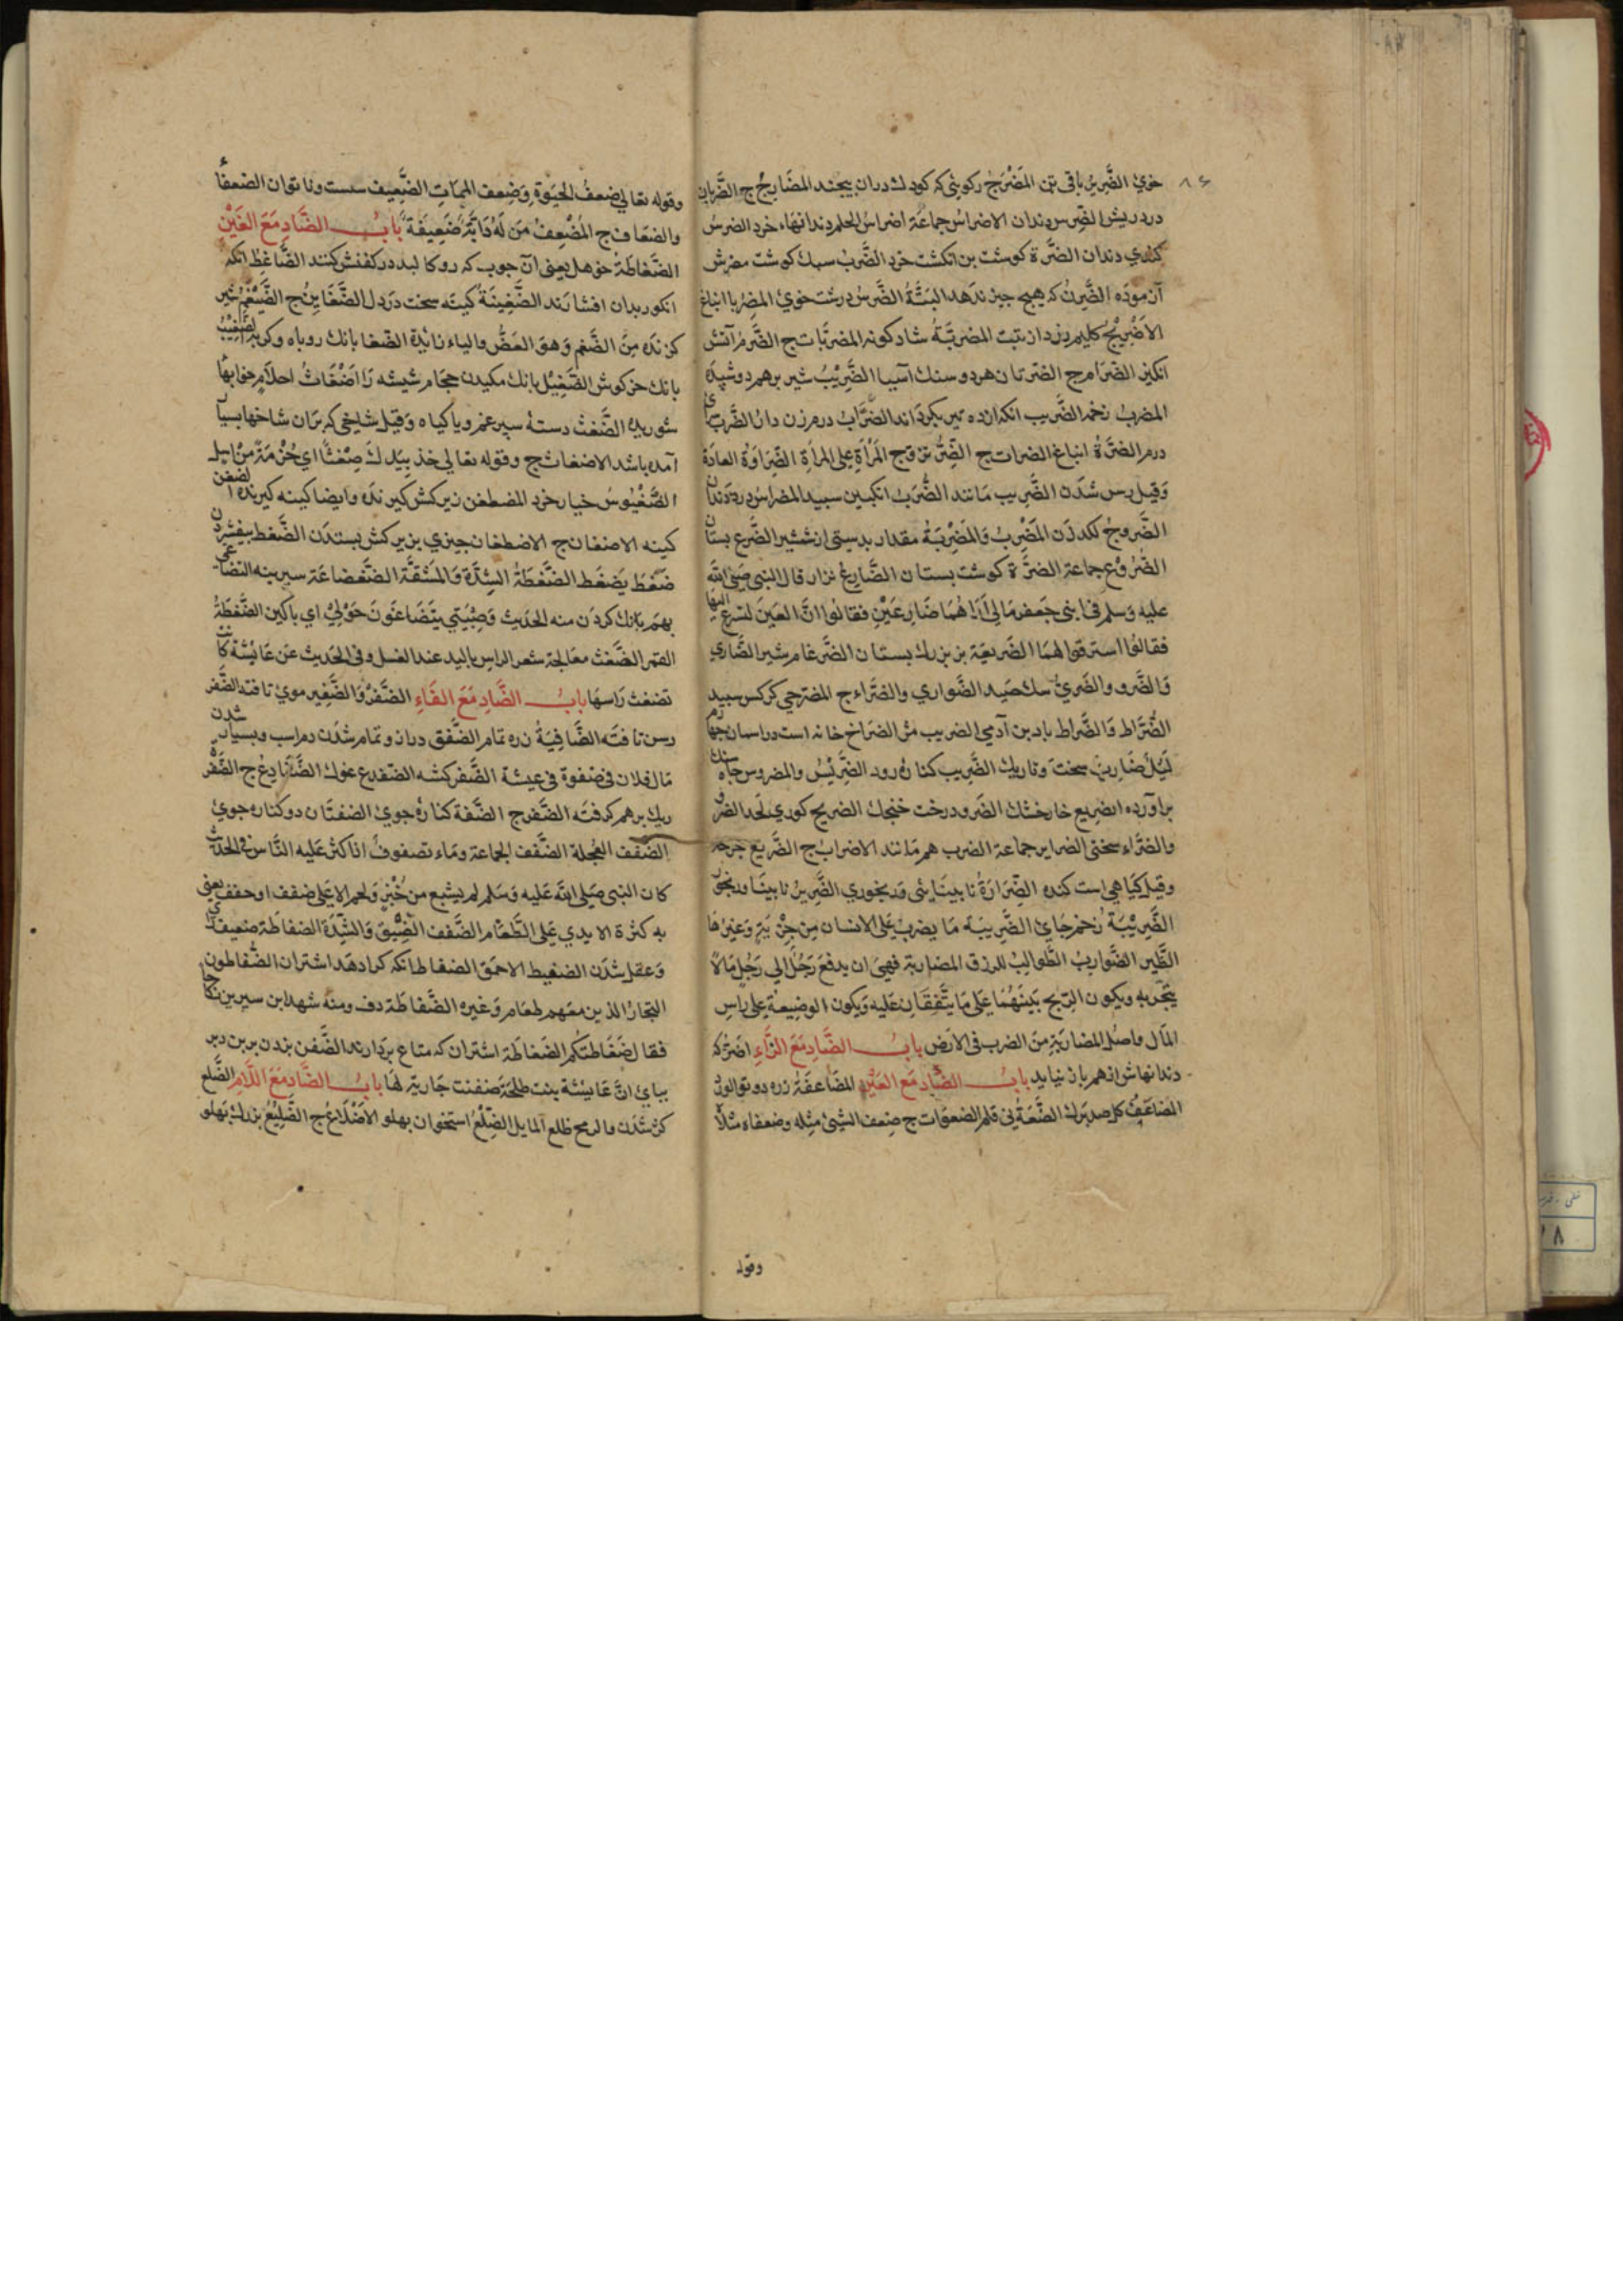 خوی الضَّرِیرُ باقی تن المَضْرَج رکوئی که کودک دران بیچند المضَارِجُ ج الضَّرَبان
درد ریش الضِّرس دندان الاضراسُ جماعَة اضراسُ الحلم دندانهاء خرد الضرسُ
کندی دندان الضَّرَّة کوشت بن انکشت خرد الضَّربُ سبک کوشت مضرّس
آزموده الضَّرِیْرُ که هیچ چیز ندهد البتَّةُ الضَّرسُ درشت خویُ المضِرُ با انباغ
الاضْرِیْجُ کلیم زرد از بتیت المضربَّةُ شادکونه المضرَّبات ج الضَّرمُ آتش
انکیز الضرَام ج الضرتان هردو سنک آسیا الضَّرِیْبُ شیر برهم دوشیده
المضربُ زخم الضَّریب انکه انده تیر بکرداند الضَرَّابُ درم زن دارُ الضَّرب سرای
درم الضرَّةُ انباغ الضرات ج الضِّرُّ تزوج المَرْأةِ علی المراَةِ الضَّرَاوَةُ العادَة
وَقیل بس شدَن الضَّرِیب مَانند الضَّرَبُ انکبین سپید المضراسُ درد دندان
الضَّروجُ لکد زدن المَضْرِبُ وَالمَضْرِبَةُ مقدار بدستی از شمشیر الضَّرع بستان
الضُّرُوع جماعة الضرَّة کوشت بستان الضَّارِعُ نزار قال النبی صَلی الله
علیه وسلم فی ابنی جَعفر مَالی اَرَاهُمَا ضَارِعَیْنِ فقالوا انَّ العَینَ لتسرع الیهما
فقالوا استرقوا لهمَا الضَریعَة بز بزرک بستان الضَّرغام شیر الضَّاری
وَالضَّرو والضَریُّ سک صَید الضَّواری والضرَّاء ج المضرحی کرکس سپید
الضُّرَاط وَالضَّراط باد بن آدمی الضریب مثل الضرَاح خانه است در اسمان چهارم
لَیْلٌ ضَارِبٌ سخت وتاریک الضَّرِیب کنارهٔ رود الضَّرِیْسُ والمضروس چاه سنک
براورده الضریع خار خشک الضَرو درخت خنجک الضریح کوری لحد الضر
والضرَّاء سختی الضرایر جماعة الضرب هم مَانند الاضرابُ ج الضَّریع جرحه
وقیل کیاهی است کنده الضَّرَارَةُ نابینَایی ورنجوری الضَّرِیرُ نابینَا ورنجور
الضَّرِیْبَةُ زخم جَایُ الضَّرِیبَة مَا یضرب عَلی الانسَان مِن جِزْیَةٍ وَغیرهَا
الطَّیر الضَّوَاربُ الطَّوالبُ للرزق المضاربَة فهیَ ان یدفعَ رَجُلٌ الی رَجُلٍ مَالًا
یتَّجربِه ویکون الرّبح بَینَهُمَا عَلی مَا یتَّفِقَانِ عَلیه وَیکون الوضِیعَة علی راسِ
المَال واصل المضارَبَةِ مِنَ الضرب فی الاَرض بابُ الضَّادِ مَعَ الزَّاءِ اضزّ که
دندانهاش از هم باز نیاید بابُ الضَّادِ مَعَ العَیْنِ المضَاعَفَةُ زره دوتو الوزُ
المضاعَفُ کل صد برک الضَّعَةُ نی قلم الضعوَات ج ضِعف الشَّیئ مِثله وضعفاه مثلَاهُ
وقوله
وقوله تعالی ضعفُ الحیَوة وَضِعف الممَات الضَّعِیف سست وناتوان الضعفَأ
والضعَاف ج المُضْعِفُ مَن لَهُ دَابَّةٌ ضَعِیفَةٌ بَابُ الضَّادِ مَعَ الغَیْنِ
الضَّغَاطَةُ خوهل یعنی آن چوب که رو کالبد در کفش کنند الضَّاغِط انکه
انکور بدان افشارَند الضَّغِینَةُ کینَه سخت دَر دل الضَّغَایِنُ ج الضَّیْغَمُ شیر
کزنده مِنَ الضَّغم وَهوَ العَضُّ والیاء زائدة الضغَا بانک روباه وکربه الضَّغِیْبُ
بانک خرکوش الضَّغِیْل بانک مکیدن حجَام شیشه رَا اَضْغَاثُ احلامٍ خوابهاء
شوریده الضَّغْث دستهٔ سپرغم ویا کیاه وَقیل شاخی که بَران شاخها بسیار
آمده باشد الاضغاث ج وقوله تعالی خذ بِیَدِکَ ضِغْثًا ای حُزْمَةً مِنْ اسل
الضَّغْبُوسُ خیار خرد المضطغن زیرکش کیرنده وایضا کینه کیرنده الضغن
کینه الاضغان ج الاضطغان چیزی بزیر کش بستدَن الضَّغط بیفشردن
ضَغَطَ یَضغَط الضَّغطَةُ الشِدَّة وَالمَشَقَّة الضَّغضاعَة سیرینه التضاغی
بهم بانک کردَن منه الحدیث وَصِبْیَتی یتَضَاغَونَ حَوْلیْ ای باکین الضَّغطَةُ
القهر الضَّغْث معَالجة شعر الراس بالید عند الغسل وفی الحَدیث عَن عَائشَة کَانَت
تضغث رَاسهَا بابُ الضَّادِ مَعَ الفَاءِ الضَّفْرُ وَالضَّفِیر مویُ تافته الضَّفر
رسن تافتَه الضَّافِیَةُ زره تمام الضَّفق دراز وتمام شدُن دم اسب وبسیار شدن
مَال فلان فی ضفوة فی عیشة الضَّفر کشه الضفدع غوک الضَّفَادِعُ ج الضَّفر
ریک برهم کرفتَه الضَّفر ج الضَّفة کنارهٔ جوی الضفتَان دو کناره جوی
الضَّفَف العُجلة الضَّفَف الجماعة ومَاء تضفوفٌ اذا کثر عَلیه النَّاس فی الحدیث
کان النبی صَلی الله عَلیه وَسلم لم یشبع من خُبْزٍ وَلحم الا عَلی ضفف او حفف یعنی
به کثرة الایدی عَلی الطَّعَام الضَّفف الضِّیْق وَالشِّدَة الضفاطَة ضعیف رای
وَعقل شدَن الضفیط الاحمَق الضفاط انکه کرا دهَد اشتران الضَّفاطون
التجارُ الذین مَعَهم طعَام وَغیره الضَّفاطَة دف ومنه شهد ابن سیرین نکاحًا
فقال ضَفَاطتکم الضَفاطَة اشتران که متاع بردارند الضَّفن بزدن بر بن دبر
بپایُ انَّ عَایشَة بنت طلحَة ضفنت جَاریَة لهَا بابُ الضَّادِ مَعَ اللَّامِ الضَّلع
کژ شدَن والرمح ظلع المایل الضِّلْعُ استخوان بهلو الاضْلَاعُ ج الضَّلِیْعُ بزرک بَهلو